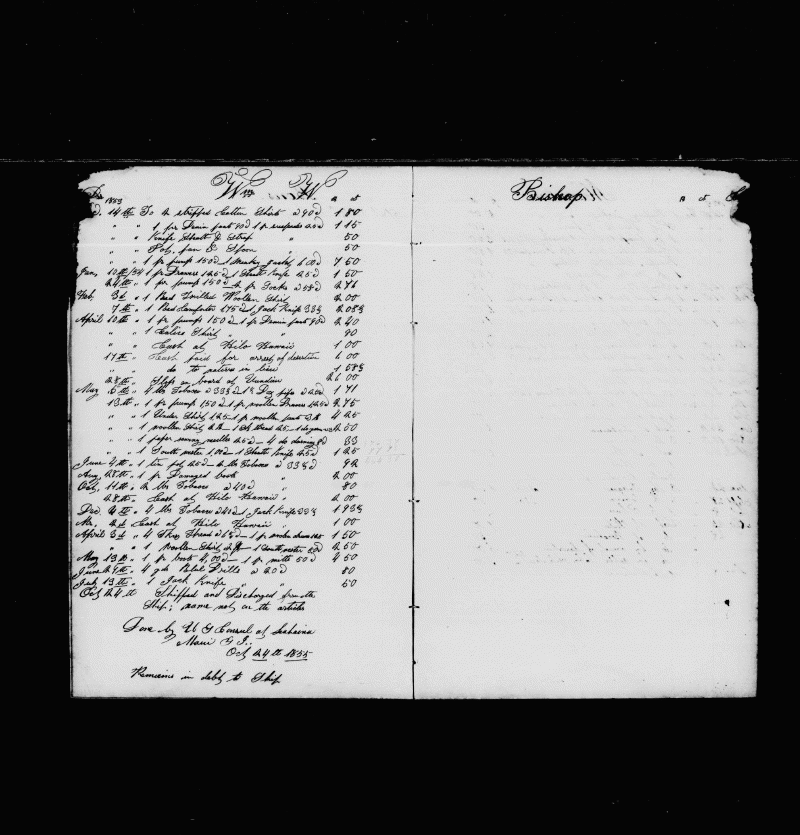 Dr Wm W Bishop Cr
1853
14th To 2 stripped Cotton Shirts 90¢ 1 80
" " 1 pr Denim pants 90¢ 1 pr suspenders 25¢ 1 15
" " Knife Sheath & Strap " 50
" " Pot, pan & Spoon " 50
" " 1 pr pumps 150¢ 1 Monkey jacket 600¢ 7 50
Jan, 10th/54 1 pr Drawers 125¢ 1 Sheath Knife 25¢ 1 50
24th " 1 pr pumps 150¢ 2 pr Socks
Feb, 3d " 1 Red Twilled Woollen Shirt 2 00
7th " 1 Red 175¢ 1 Jack Knife 33⅓ 2 08⅓
April 10th " 1 pr pumps 150¢ 1 pr Denim pants 90¢ 2 40
" " 1 Calico Shirt " 90
" " Cash at Hilo Hawaii " 1 00
17th " Cash paid for arrest of desertion 6 00
" do to natives in lieu
28th " Slops on board of 2 00
May 6th " 4 lbs Tobacco 33⅓
13th " 1 pr pumps 150¢ 1 pr woollen Drawers 125¢ 2 75
" " 1 Under Shirt 125 1 pr woollen pants 4 25
" " 1 woollen Shirt 2 50
" " 1 paper sewing needles 25¢ 4 do darning 8¢ 33
" " 1 South wester 100 1 Sheath Knife 25¢ 1 25
June 4th " 1 tin pot 25¢ 2 lbs Tobacco a 33⅓¢ 92
Aug, 28th " 1 pr Damaged boots " 2 00
Oct, 14th " 2 lbs Tobacco a 40¢ " 80
28th " Cash at Hilo Hawaii 2 00
Dec. 4th " 4 lbs Tobacco 1 Jack Knife 33⅓ 1 93⅓
Mr, 2d Cash at Hilo Hawaii " 1 00
April 3d " 4 Skns Thread 1 pr woolen drawers 1 50
" " 1 woollen Shirt 1 South wester 50¢ 2 50
May 13th " 1 pr boots 4,00¢ 1 pr mitts 50¢ 4 50
June 29th " 4 yds Blue Drills a 20¢ 80
July 13th " 1 Jack Knife " " 50
Oct 24th Shipped and Discharged from the
Ship; name not on the articles
Done by U S Consul at Lahaina
Maui S I.
Oct 24th 1855
Remains in debt to Ship